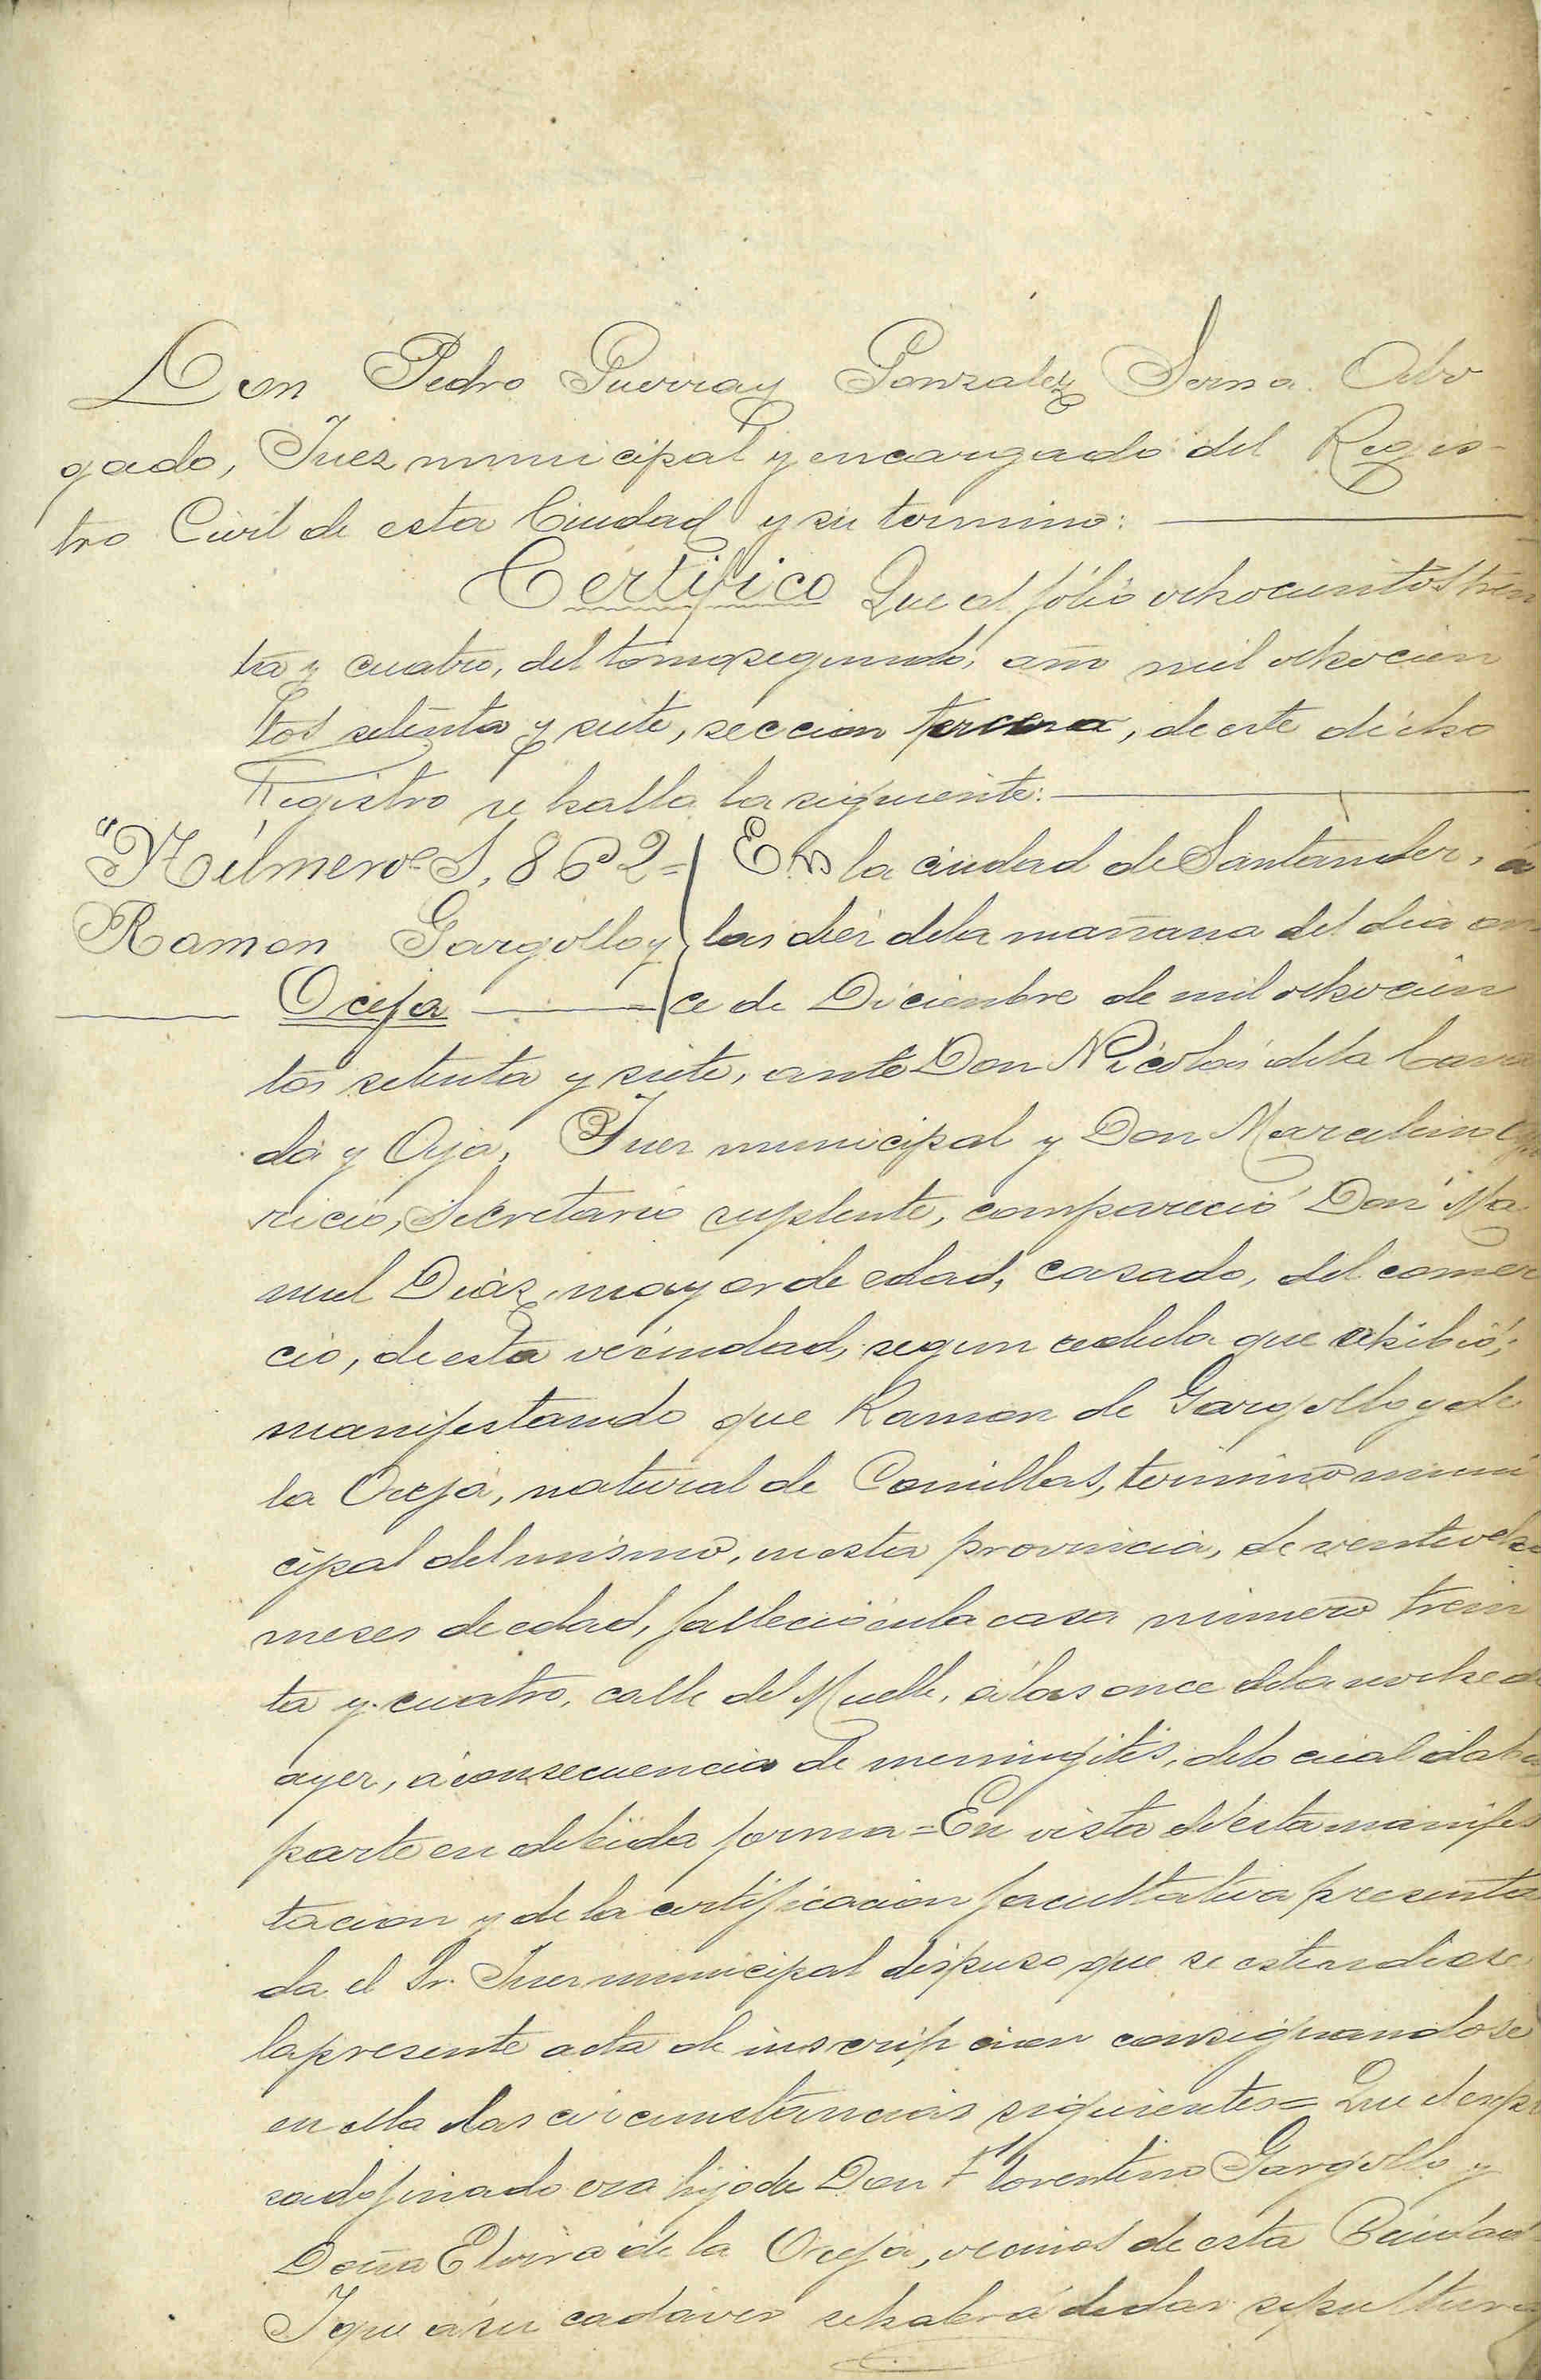 Don Pedro Guerra y Gonzalez Serna Abo
gado, Juez municipal y encargado del Regis-
tro Civil de esta Ciudad y su termino:
Certifico Que al fólio ochocientos trein
ta y cuatro, del tomo segundo, año mil ochocien
tos setenta y siete, seccion tercera, de este dicho
Registro se halla la siguiente:
"Número S. 862= En la ciudad de Santander, á
Ramon Gargollo y las diez de la mañana del dia on
Oceja ce de Diciembre de mil ochocien
tos setenta y siete, ante Don Nicolás de la
da y Oja, Juez municipal y Don Marcelino
ricio, Secretario suplente, compareció Don Ma
nuel Diaz, mayor de edad, casado, del comer
cio, de esta vecindad, segun cedula que exhibió;
manifestando que Ramon de Gargollo y de
la Oceja, natural de Comillas, termino muni
cipal del mismo, en esta provincia, de veinte ocho
meses de edad, falleció en la casa número trein
ta y cuatro, calle del Muelle, á las once de la noche de
ayer, á consecuencia de meningitis, de lo cual daba
parte en debida forma = En vista de esta manifes
tacion y de la certificacion facultativa presenta
da el Sr. Juez municipal dispuso que se estendiese
la presente acta de inscripcion consignandose
en ella las circunstancias siguientes = Que el espre
sado finado era hijo de Don Florentino Gargollo y
Doña Elvira de la Oceja, vecinos de esta Ciudad
Y que á su cadaver se habrá de dar sepultura